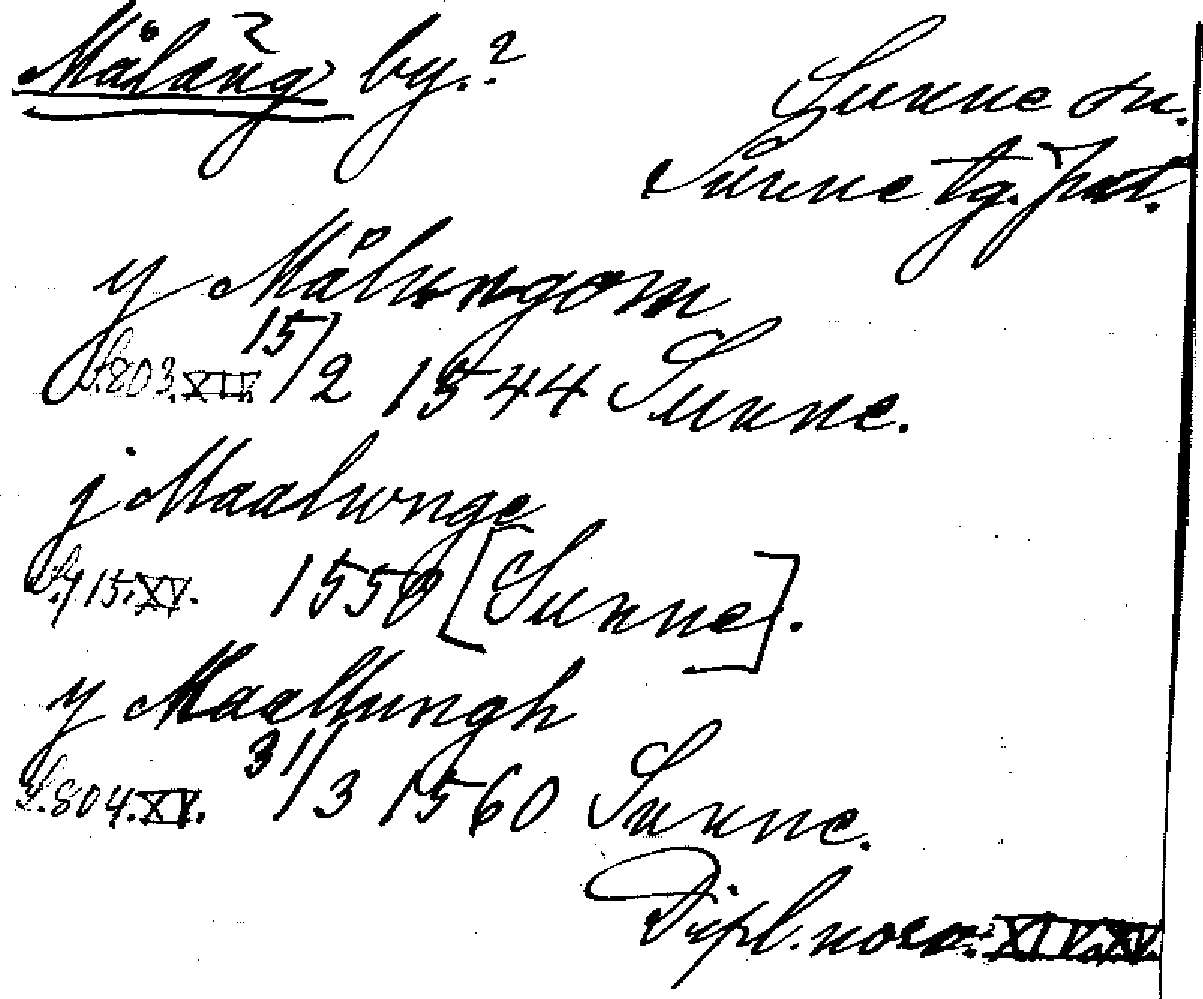 Målång by.?
Sunne sn.
Sunne tg. Jmt.
y Målungom
S. 803. XIV. 15/2 1544 Sunne.
j Maalunge
S. 715. XV. 1550 [Sunne].
y Maallungh
S. 804. XV. 31/3 1560 Sunne.
Dipl. norv. XIV. XV.